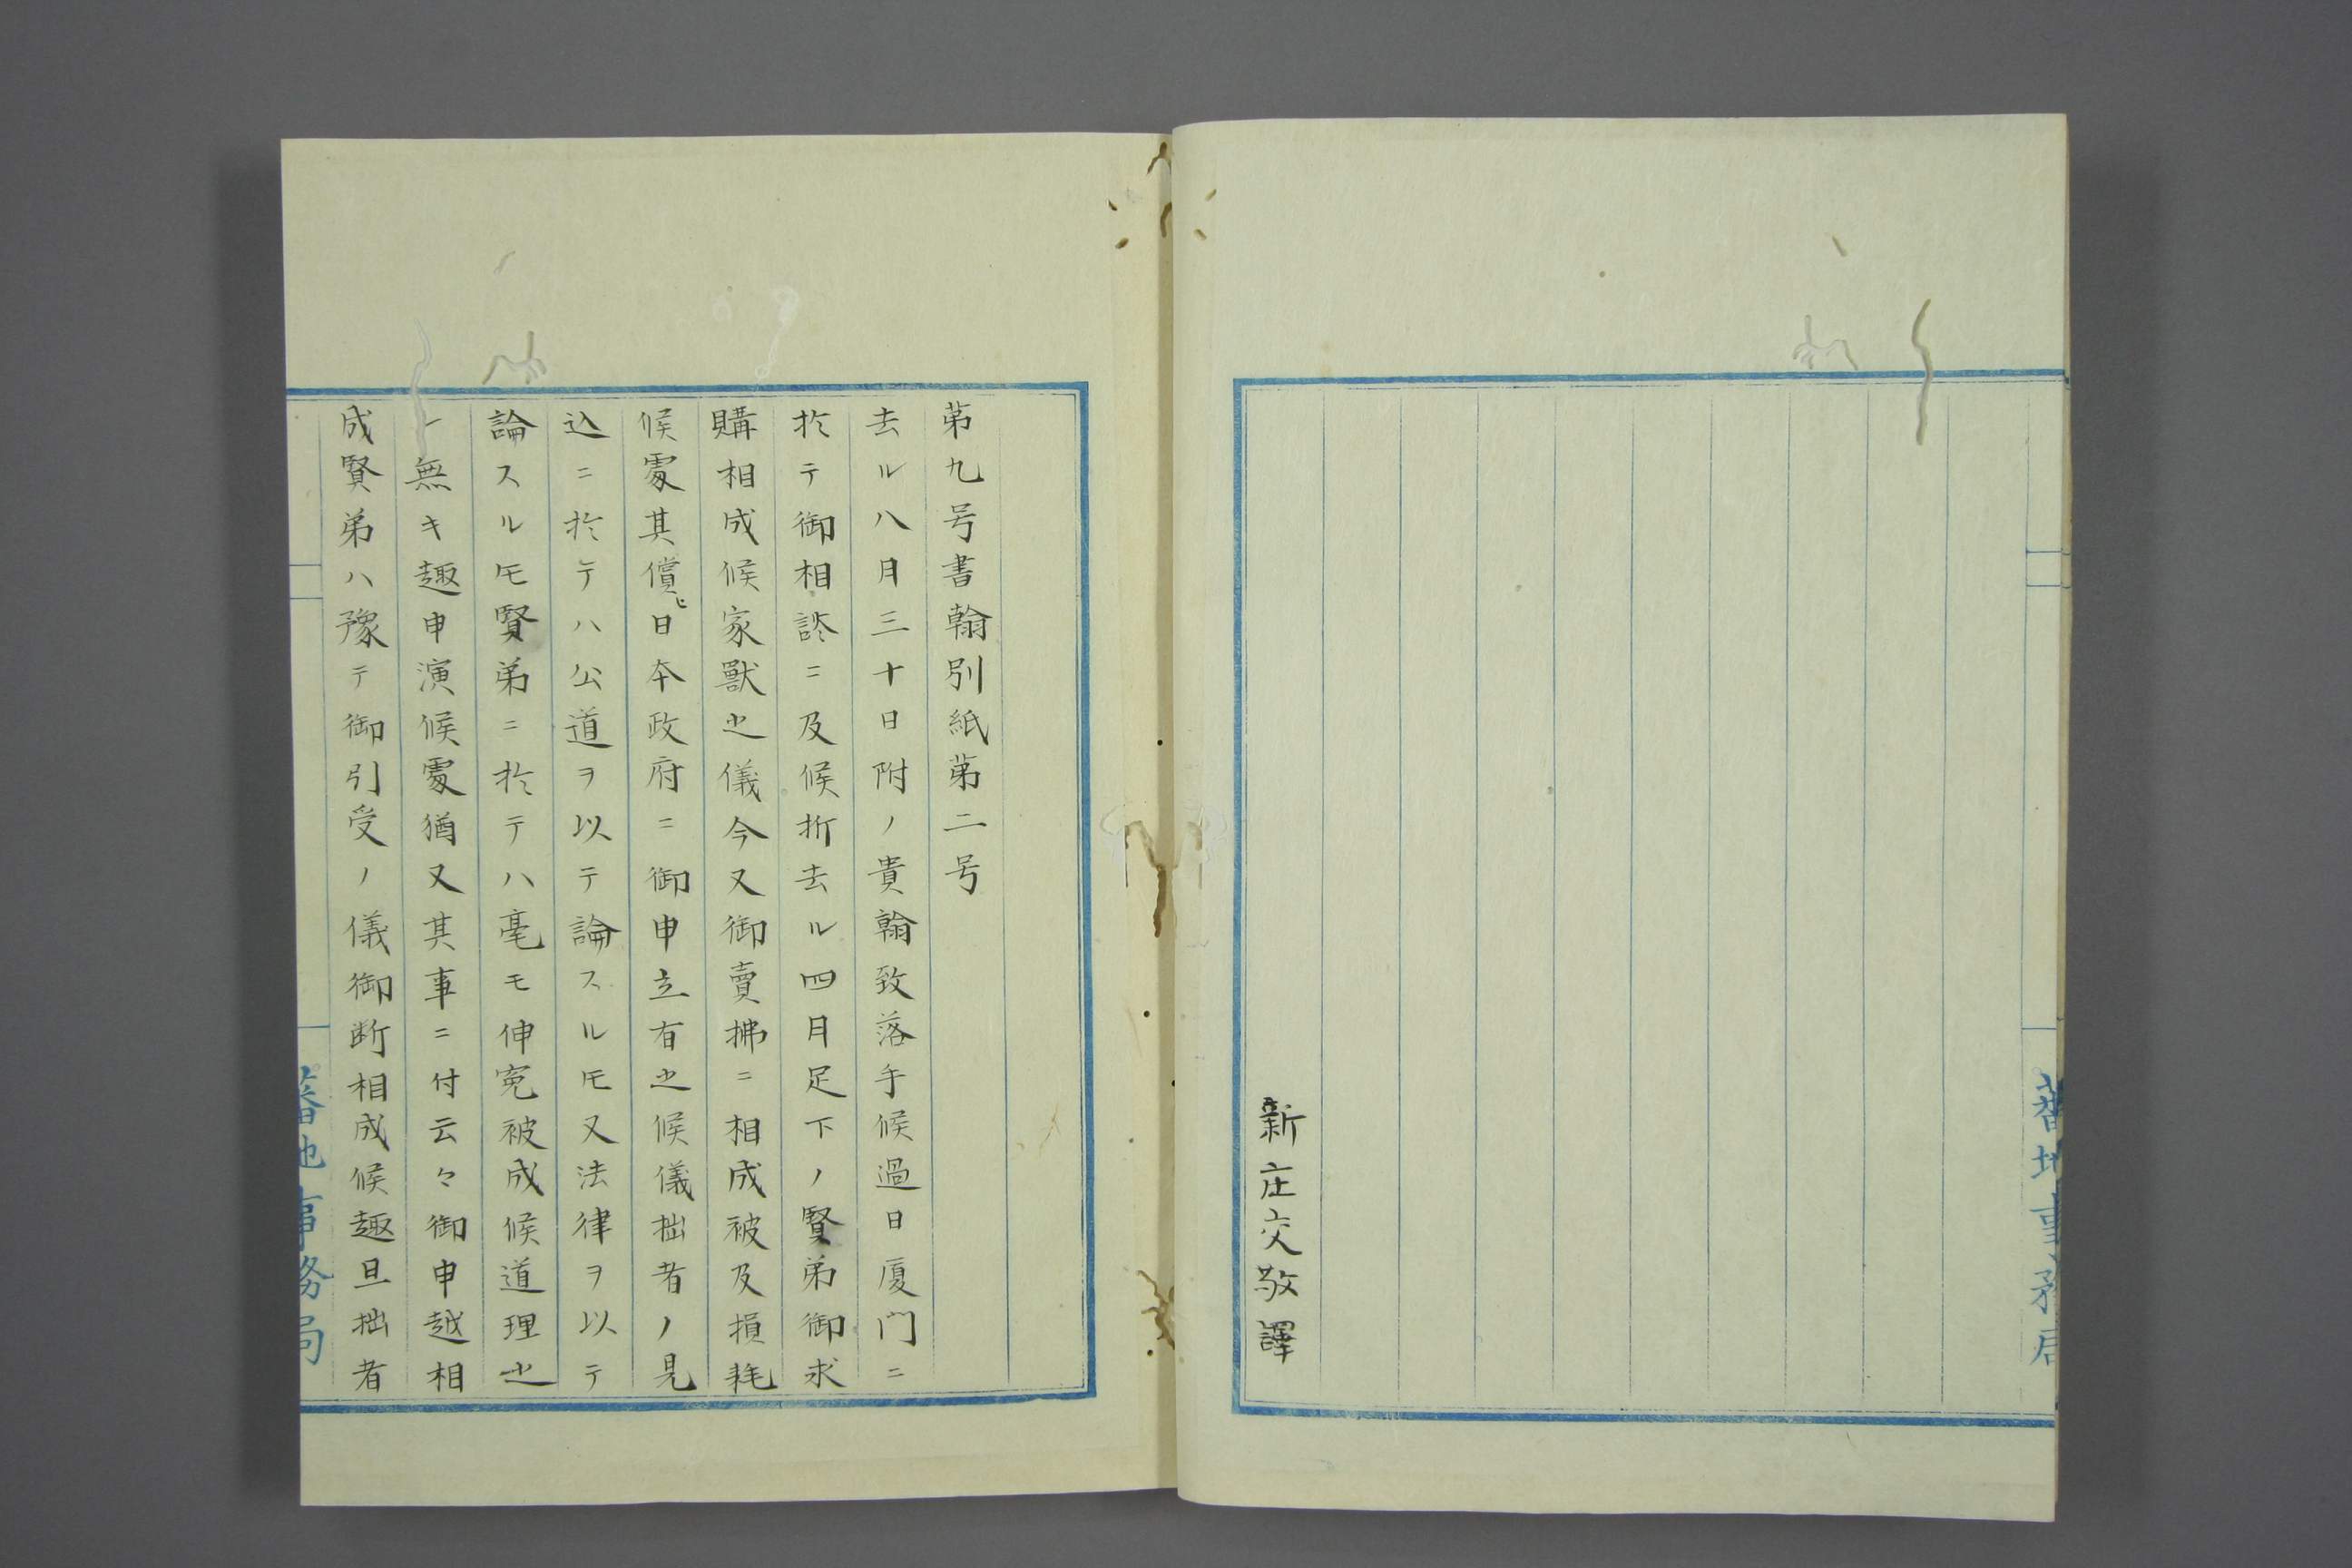 新庄交敬譯
蕃地事務局
第九号書翰別紙第二号
去ル八月三十日附ノ貴翰致落手候過日厦门ニ
於テ御相談ニ及候折去ル四月足下ノ賢弟御求
購相成候家獣之儀今又御賣拂ニ相成被及損耗
候處其償ヒ日本政府ニ御申立有之候儀拙者ノ見
込ニ於テハ公道ヲ以テ論スルモ又法律ヲ以テ
論スルモ賢弟ニ於テハ毫モ伸寃被成候道理之
無キ趣申演候處猶又其事ニ付云々御申越相
成賢弟ハ豫テ御引受ノ儀御断相成候趣旦拙者
蕃地事務局